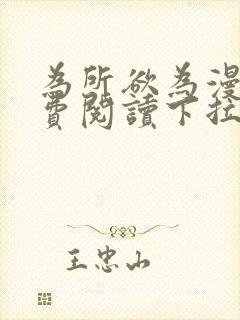 為所欲為漫
費閱讀下拉
王忠山